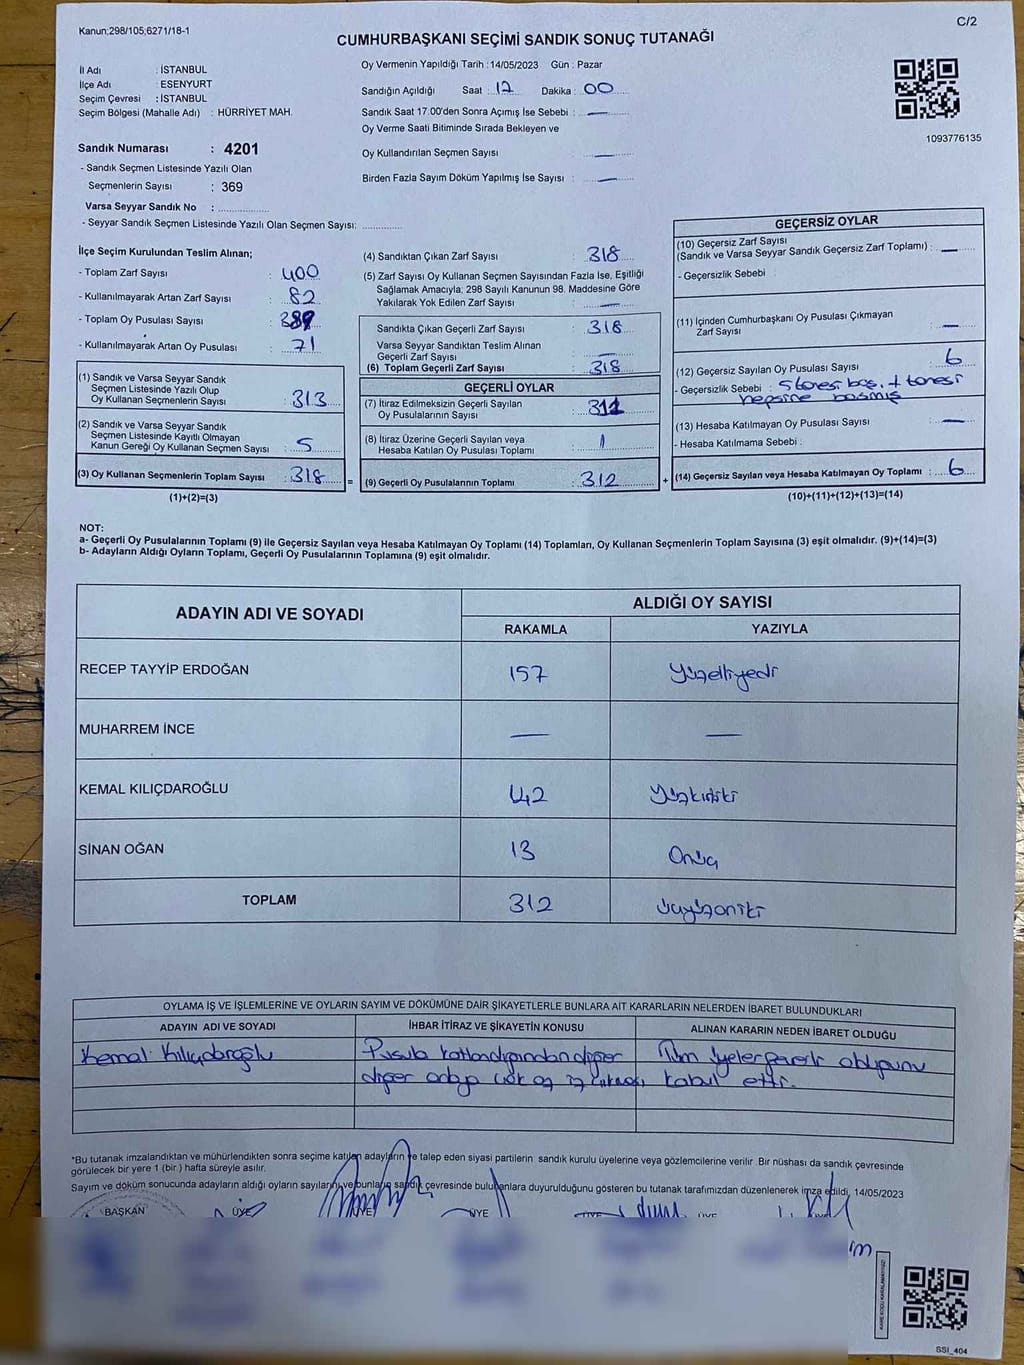 Kanun;298/105;6271/18-1
C/2
CUMHURBAŞKANI SEÇİMİ SANDIK SONUÇ TUTANAĞI
İl Adı : İSTANBUL
İlçe Adı : ESENYURT
Seçim Çevresi : İSTANBUL
Seçim Bölgesi (Mahalle Adı) : HÜRRİYET MAH.
Sandık Numarası : 4201
- Sandık Seçmen Listesinde Yazılı Olan
Seçmenlerin Sayısı : 369
Varsa Seyyar Sandık No :
- Seyyar Sandık Seçmen Listesinde Yazılı Olan Seçmen Sayısı:
Oy Vermenin Yapıldığı Tarih : 14/05/2023 Gün : Pazar
Sandığın Açıldığı Saat : 17 Dakika : 00
Sandık Saat 17:00'den Sonra Açımış İse Sebebi : —
Oy Verme Saati Bitiminde Sırada Bekleyen ve
Oy Kullandırılan Seçmen Sayısı : —
Birden Fazla Sayım Döküm Yapılmış İse Sayısı : —
1093776135
İlçe Seçim Kurulundan Teslim Alınan;
- Toplam Zarf Sayısı : 400
- Kullanılmayarak Artan Zarf Sayısı : 82
- Toplam Oy Pusulası Sayısı :
- Kullanılmayarak Artan Oy Pusulası : 71
(1) Sandık ve Varsa Seyyar Sandık
Seçmen Listesinde Yazılı Olup
Oy Kullanan Seçmenlerin Sayısı : 313
(2) Sandık ve Varsa Seyyar Sandık
Seçmen Listesinde Kayıtlı Olmayan
Kanun Gereği Oy Kullanan Seçmen Sayısı : 5
(3) Oy Kullanan Seçmenlerin Toplam Sayısı : 318
(1)+(2)=(3)
(4) Sandıktan Çıkan Zarf Sayısı : 318
(5) Zarf Sayısı Oy Kullanan Seçmen Sayısından Fazla İse, Eşitliği
Sağlamak Amacıyla; 298 Sayılı Kanunun 98. Maddesine Göre
Yakılarak Yok Edilen Zarf Sayısı : —
Sandıkta Çıkan Geçerli Zarf Sayısı : 318
Varsa Seyyar Sandıktan Teslim Alınan
Geçerli Zarf Sayısı : —
(6) Toplam Geçerli Zarf Sayısı : 318
GEÇERLİ OYLAR
(7) İtiraz Edilmeksizin Geçerli Sayılan
Oy Pusulalarının Sayısı : 311
(8) İtiraz Üzerine Geçerli Sayılan veya
Hesaba Katılan Oy Pusulası Toplamı : 1
= (9) Geçerli Oy Pusulalarının Toplamı : 312
GEÇERSİZ OYLAR
(10) Geçersiz Zarf Sayısı
(Sandık ve Varsa Seyyar Sandık Geçersiz Zarf Toplamı) : —
- Geçersizlik Sebebi :
(11) İçinden Cumhurbaşkanı Oy Pusulası Çıkmayan
Zarf Sayısı : —
(12) Geçersiz Sayılan Oy Pusulası Sayısı : 6
- Geçersizlik Sebebi : 5 tanesi boş, 1 tanesi
hepsine basmış
(13) Hesaba Katılmayan Oy Pusulası Sayısı : —
- Hesaba Katılmama Sebebi :
+ (14) Geçersiz Sayılan veya Hesaba Katılmayan Oy Toplamı : 6
(10)+(11)+(12)+(13)=(14)
NOT:
a- Geçerli Oy Pusulalarının Toplamı (9) ile Geçersiz Sayılan veya Hesaba Katılmayan Oy Toplamı (14) Toplamları, Oy Kullanan Seçmenlerin Toplam Sayısına (3) eşit olmalıdır. (9)+(14)=(3)
b- Adayların Aldığı Oyların Toplamı, Geçerli Oy Pusulalarının Toplamına (9) eşit olmalıdır.
ADAYIN ADI VE SOYADI ALDIĞI OY SAYISI
RAKAMLA YAZIYLA
RECEP TAYYİP ERDOĞAN 157 Yüzelliyedi
MUHARREM İNCE — —
KEMAL KILIÇDAROĞLU 142 Yüzkırkiki
SİNAN OĞAN 13 Onüç
TOPLAM 312 üçyüzoniki
OYLAMA İŞ VE İŞLEMLERİNE VE OYLARIN SAYIM VE DÖKÜMÜNE DAİR ŞİKAYETLERLE BUNLARA AİT KARARLARIN NELERDEN İBARET BULUNDUKLARI
ADAYIN ADI VE SOYADI İHBAR İTİRAZ VE ŞİKAYETİN KONUSU ALINAN KARARIN NEDEN İBARET OLDUĞU
Kemal Kılıçdaroğlu Pusula katlandığından diğer Tüm üyeler geçerli olduğunu
diğer adaya çok az iz çıkması kabul etti.
*Bu tutanak imzalandıktan ve mühürlendikten sonra seçime katılan adayların ve talep eden siyasi partilerin sandık kurulu üyelerine veya gözlemcilerine verilir .Bir nüshası da sandık çevresinde
görülecek bir yere 1 (bir ) hafta süreyle asılır.
Sayım ve döküm sonucunda adayların aldığı oyların sayıları ve bunların sandık çevresinde bulunanlara duyurulduğunu gösteren bu tutanak tarafımızdan düzenlenerek imza edildi, 14/05/2023
BAŞKAN ÜYE ÜYE ÜYE ÜYE ÜYE
SSI_404